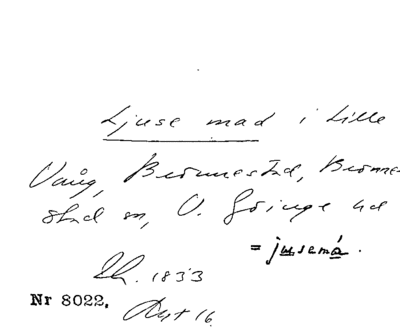 Ljuse mad i Lille
Vång, Brönnestad, Brönne-
stad sn, V. Göinge hd
= jusemá.
Lh. 1833
Nr 8022. Akt 16